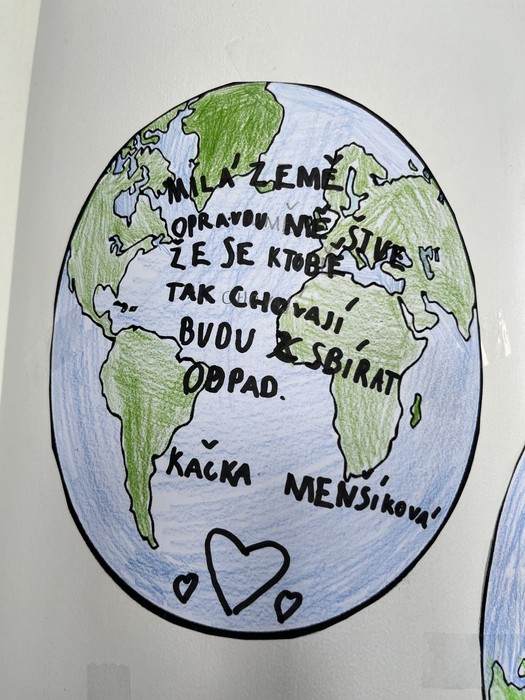 MILÁ ZEMĚ,
OPRAVDU MĚ ŠTVE
ŽE SE KTOBĚ
TAK CHOVAJÍ
BUDU SBÍRAT
ODPAD.
KAČKA MENŠÍKOVÁ